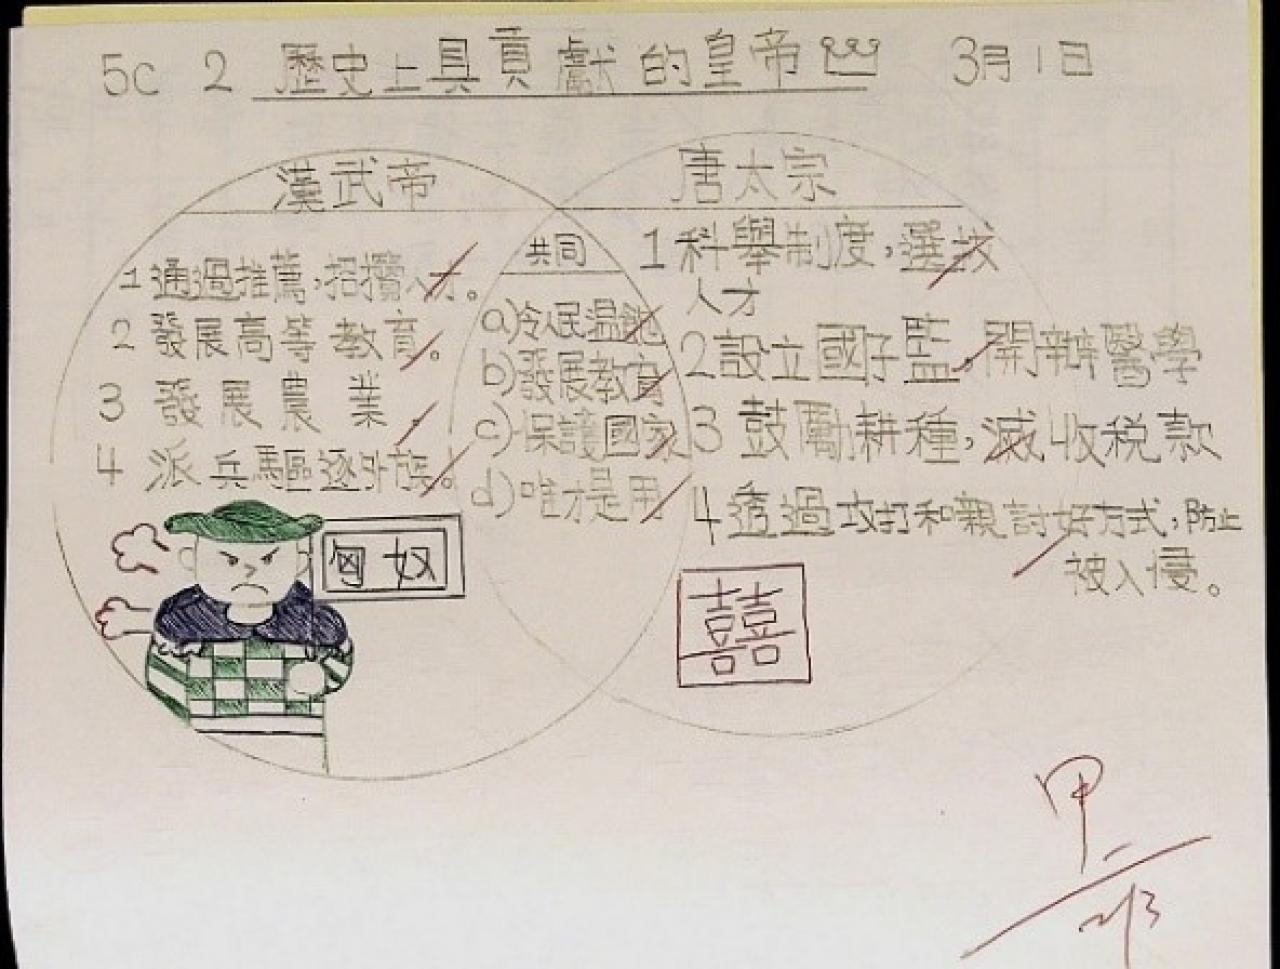 5C 2 歷史上具貢獻的皇帝 3月1日
漢武帝
1 通過推薦,招攬人才。
2 發展高等教育。
3 發展農業。
4 派兵驅逐外族。
匈奴
共同
a)令人民温飽
b)發展教育
c)保護國家
d)唯才是用
唐太宗
1 科舉制度,選拔
人才
2 設立國子監。開辦醫學
3 鼓勵耕種,減收税款
4 透過攻打和親討好方式,防止
被入侵。
囍
甲
2/3